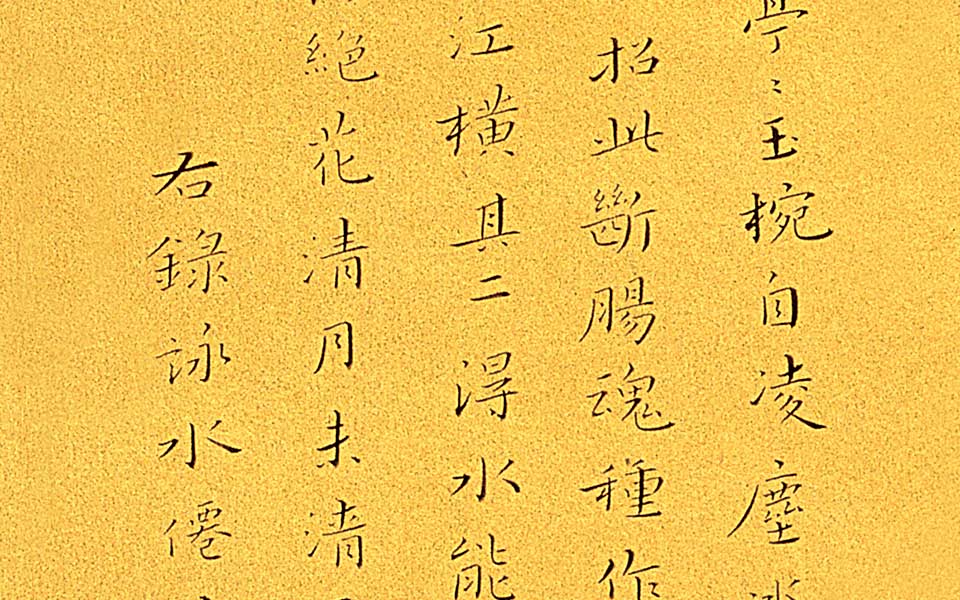 亭〻玉椀自凌塵
招此斷腸魂種作
江橫其二得水能
絕花清月未清
右錄詠水僊